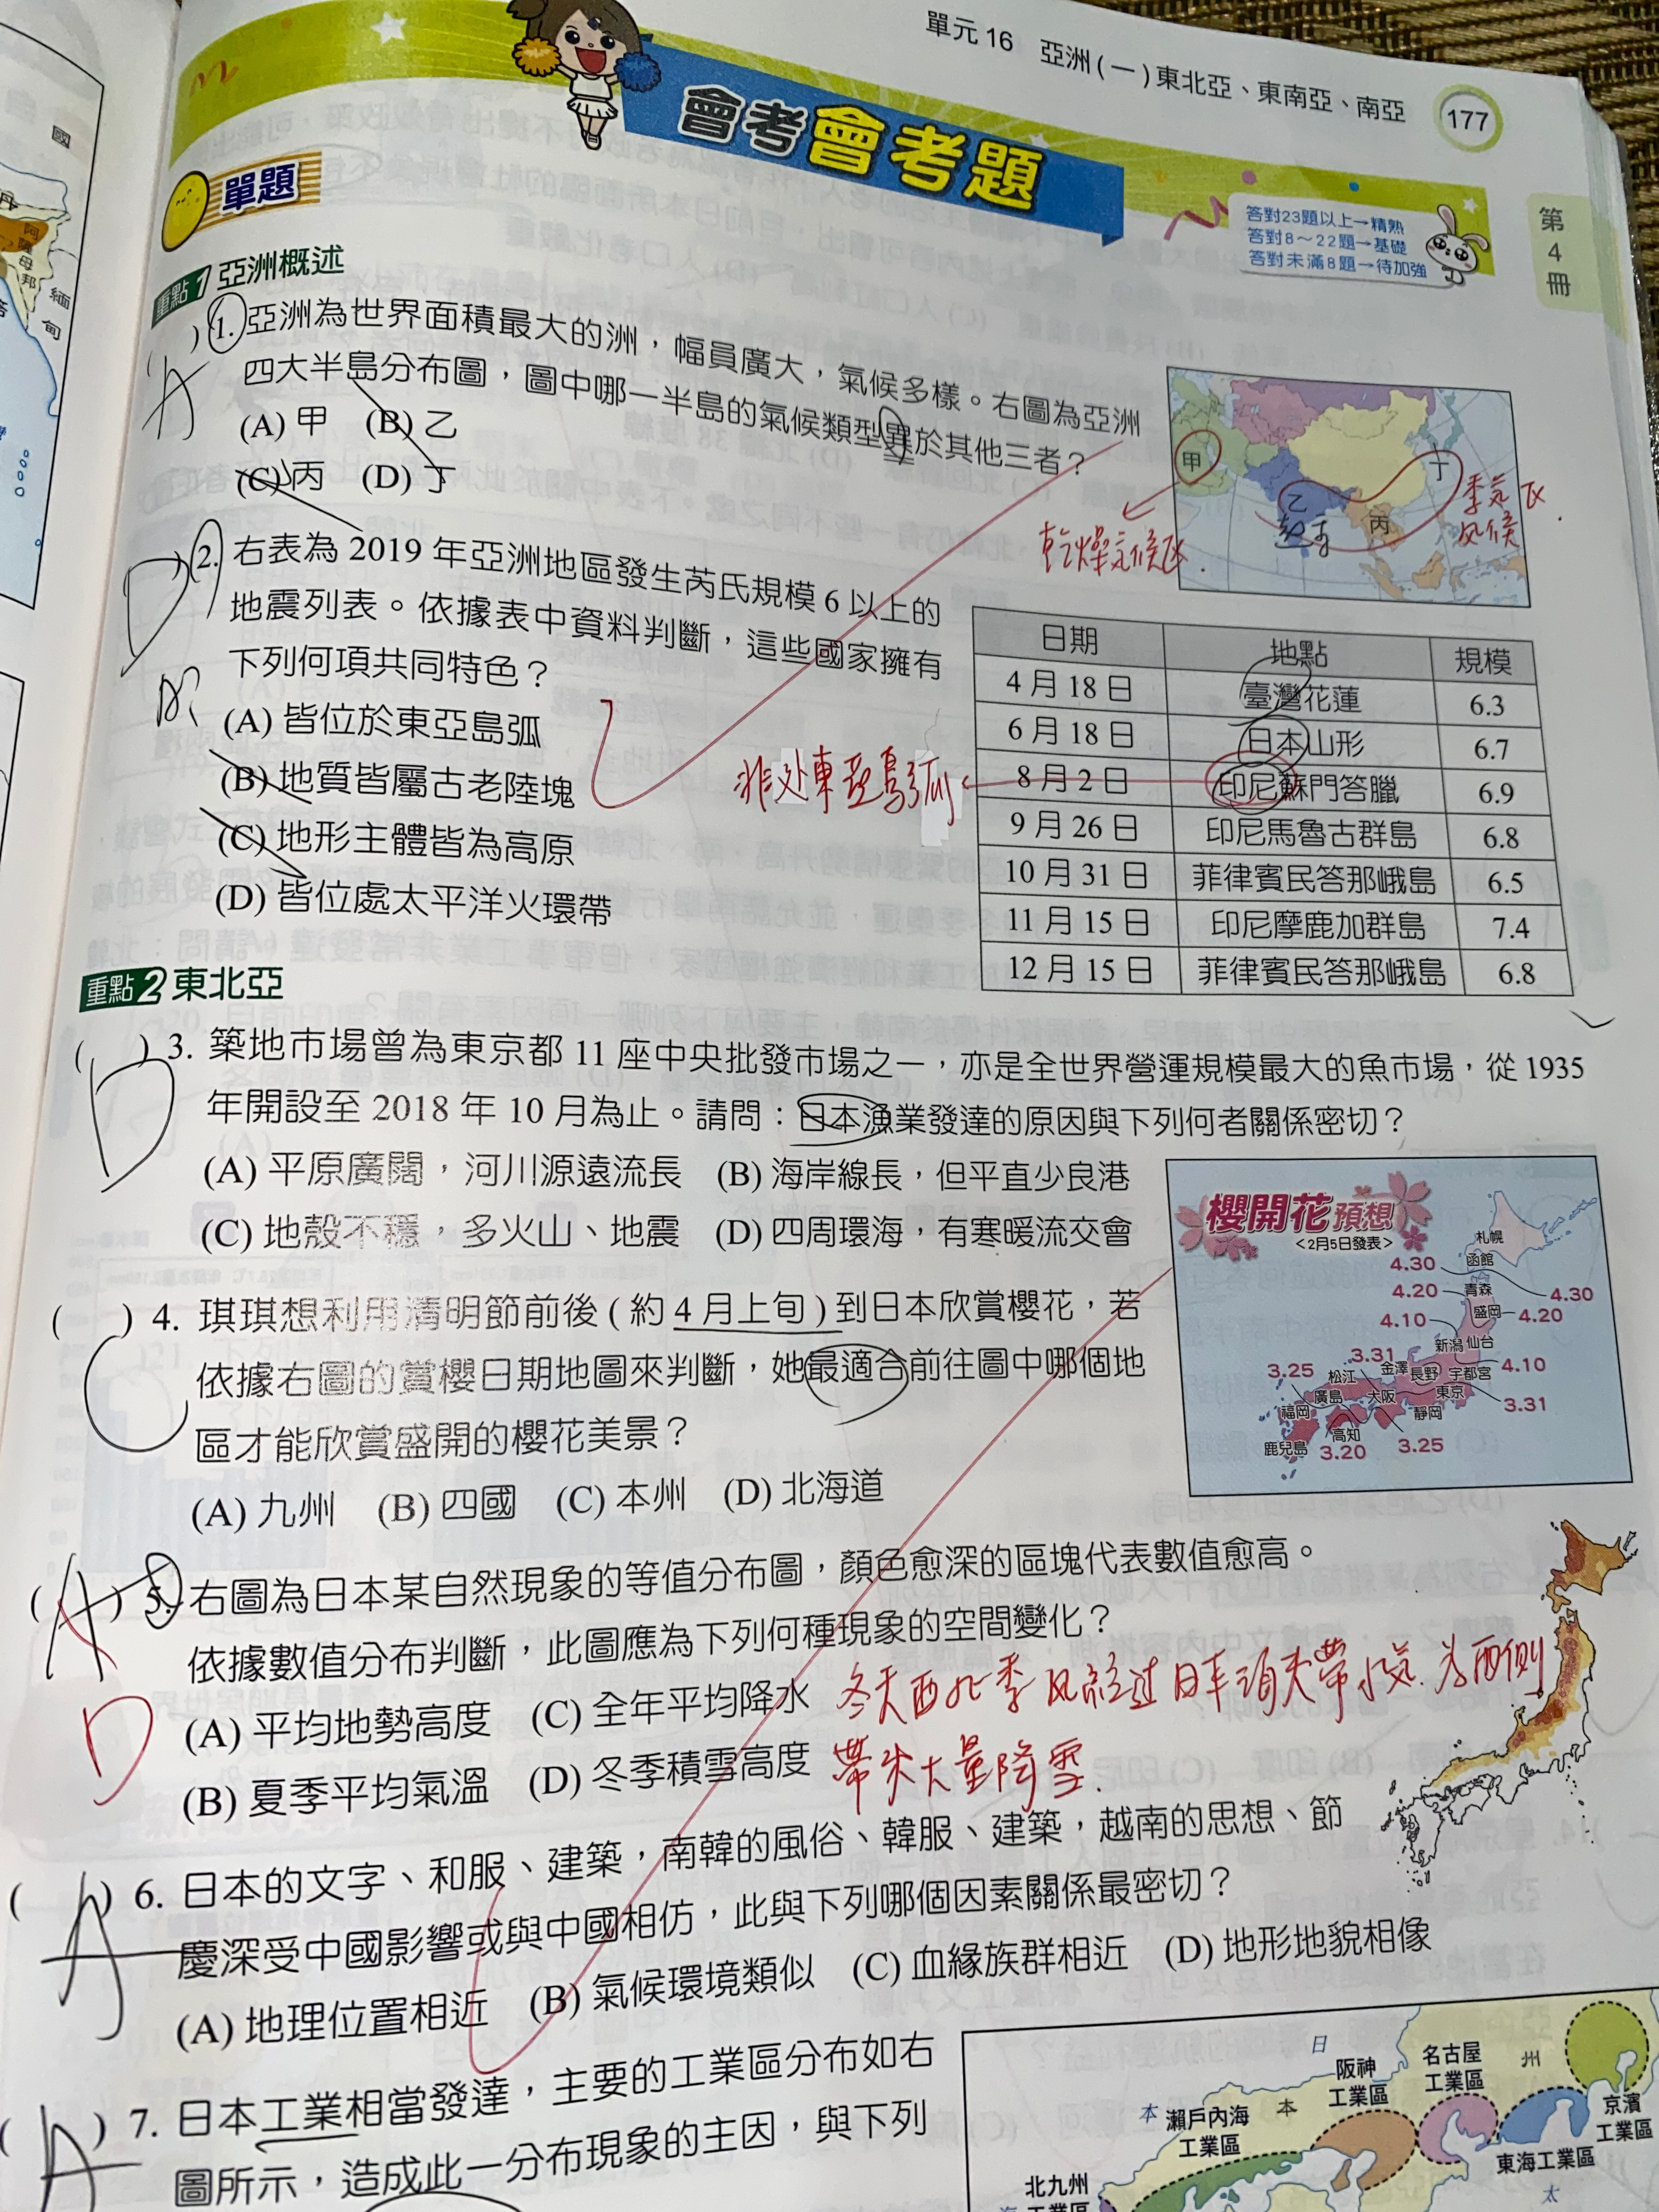 單元 16 亞洲(一)東北亞、東南亞、南亞 177
會考會考題
答對23題以上→精熟
答對8～22題→基礎
答對未滿8題→待加強
第4冊
單題
重點1 亞洲概述
( A ) 1. 亞洲為世界面積最大的洲，幅員廣大，氣候多樣。右圖為亞洲
四大半島分布圖，圖中哪一半島的氣候類型異於其他三者？
(A) 甲 (B) 乙
(C) 丙 (D) 丁
甲
乙
丙
丁
乾燥氣候區.
季风氣候区.
( D ) 2. 右表為 2019 年亞洲地區發生芮氏規模 6 以上的
地震列表。依據表中資料判斷，這些國家擁有
下列何項共同特色？
(A) 皆位於東亞島弧
(B) 地質皆屬古老陸塊
(C) 地形主體皆為高原
(D) 皆位處太平洋火環帶
非处東亞島弧
日期 地點 規模
4 月 18 日 臺灣花蓮 6.3
6 月 18 日 日本山形 6.7
8 月 2 日 印尼蘇門答臘 6.9
9 月 26 日 印尼馬魯古群島 6.8
10 月 31 日 菲律賓民答那峨島 6.5
11 月 15 日 印尼摩鹿加群島 7.4
12 月 15 日 菲律賓民答那峨島 6.8
重點2 東北亞
( D ) 3. 築地市場曾為東京都 11 座中央批發市場之一，亦是全世界營運規模最大的魚市場，從 1935
年開設至 2018 年 10 月為止。請問：日本漁業發達的原因與下列何者關係密切？
(A) 平原廣闊，河川源遠流長 (B) 海岸線長，但平直少良港
(C) 地殼不穩，多火山、地震 (D) 四周環海，有寒暖流交會
( C ) 4. 琪琪想利用清明節前後 ( 約 4 月上旬 ) 到日本欣賞櫻花，若
依據右圖的賞櫻日期地圖來判斷，她最適合前往圖中哪個地
區才能欣賞盛開的櫻花美景？
(A) 九州 (B) 四國 (C) 本州 (D) 北海道
櫻開花預想
<2月5日發表>
札幌
4.30 函館
4.20 青森 4.30
盛岡 4.20
4.10 新潟 仙台
3.31 金澤 長野 宇都宮 4.10
3.25 松江
廣島 大阪 東京
福岡 靜岡 3.31
高知
鹿兒島 3.20 3.25
( A ) 5. 右圖為日本某自然現象的等值分布圖，顏色愈深的區塊代表數值愈高。
依據數值分布判斷，此圖應為下列何種現象的空間變化？
(A) 平均地勢高度 (C) 全年平均降水
(B) 夏季平均氣溫 (D) 冬季積雪高度
D
冬天西北季风經过日本海夾帶水氣.為西側
帶來大量降雪.
( A ) 6. 日本的文字、和服、建築，南韓的風俗、韓服、建築，越南的思想、節
慶深受中國影響或與中國相仿，此與下列哪個因素關係最密切？
(A) 地理位置相近 (B) 氣候環境類似 (C) 血緣族群相近 (D) 地形地貌相像
( A ) 7. 日本工業相當發達，主要的工業區分布如右
圖所示，造成此一分布現象的主因，與下列
日
本 本 州
瀨戶內海工業區
阪神工業區
名古屋工業區
京濱工業區
東海工業區
北九州
太